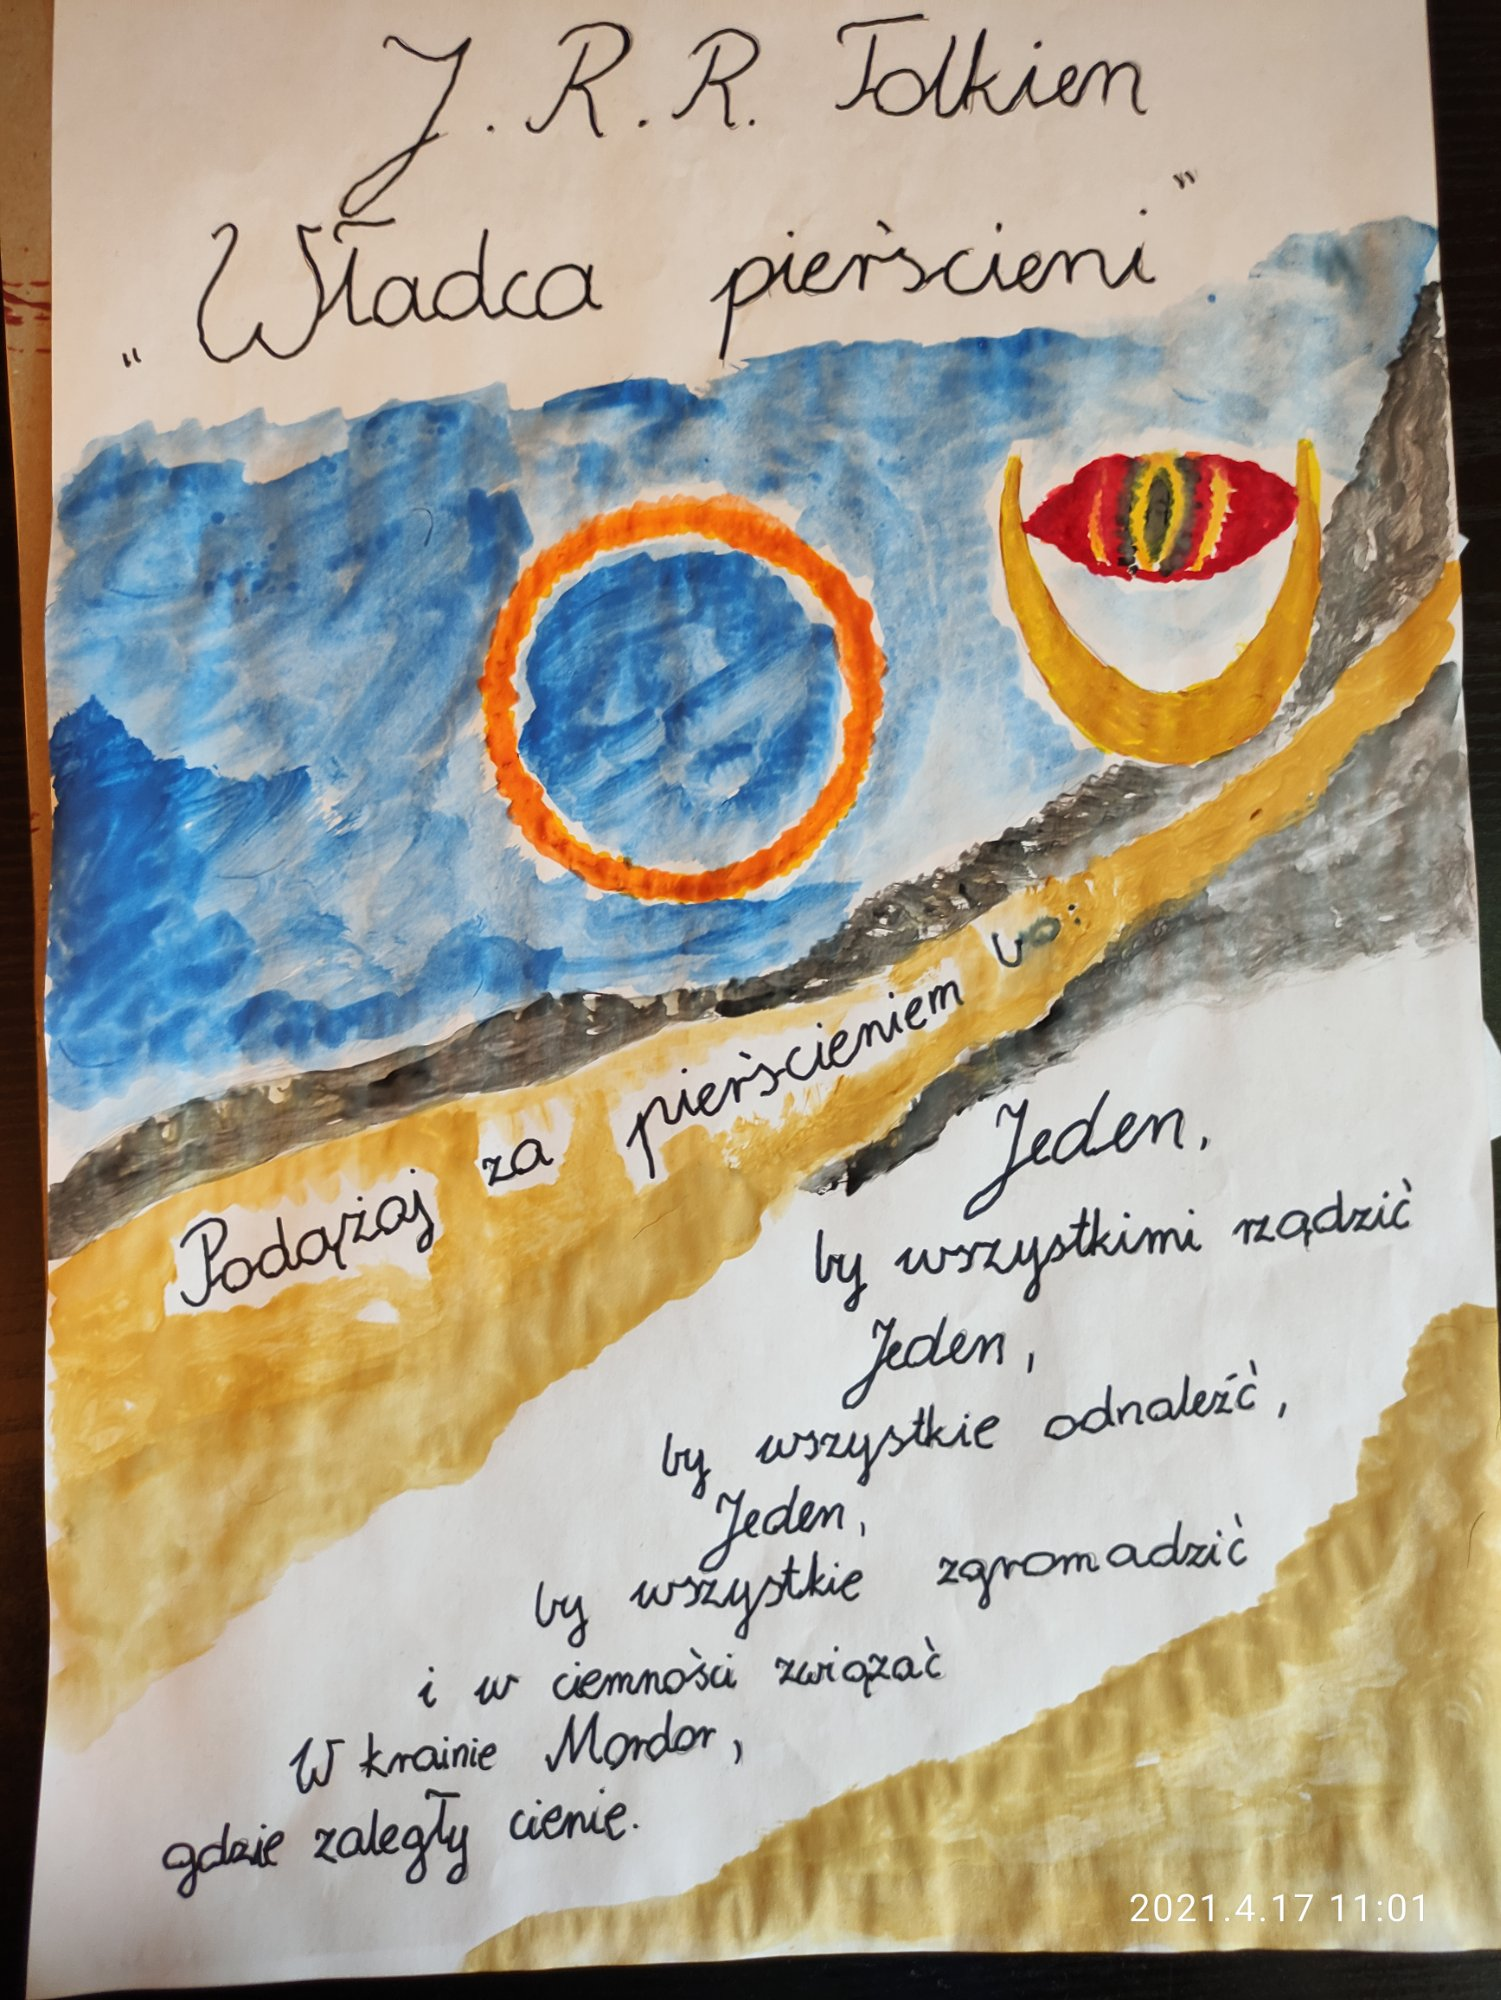 J. R. R. Tolkien
„Władca pierścieni"
Podążaj za pierścieniem
Jeden,
by wszystkimi rządzić
Jeden,
by wszystkie odnaleźć,
Jeden,
by wszystkie zgromadzić
i w ciemności związać
W krainie Mordor,
gdzie zaległy cienie.
2021.4.17 11:01